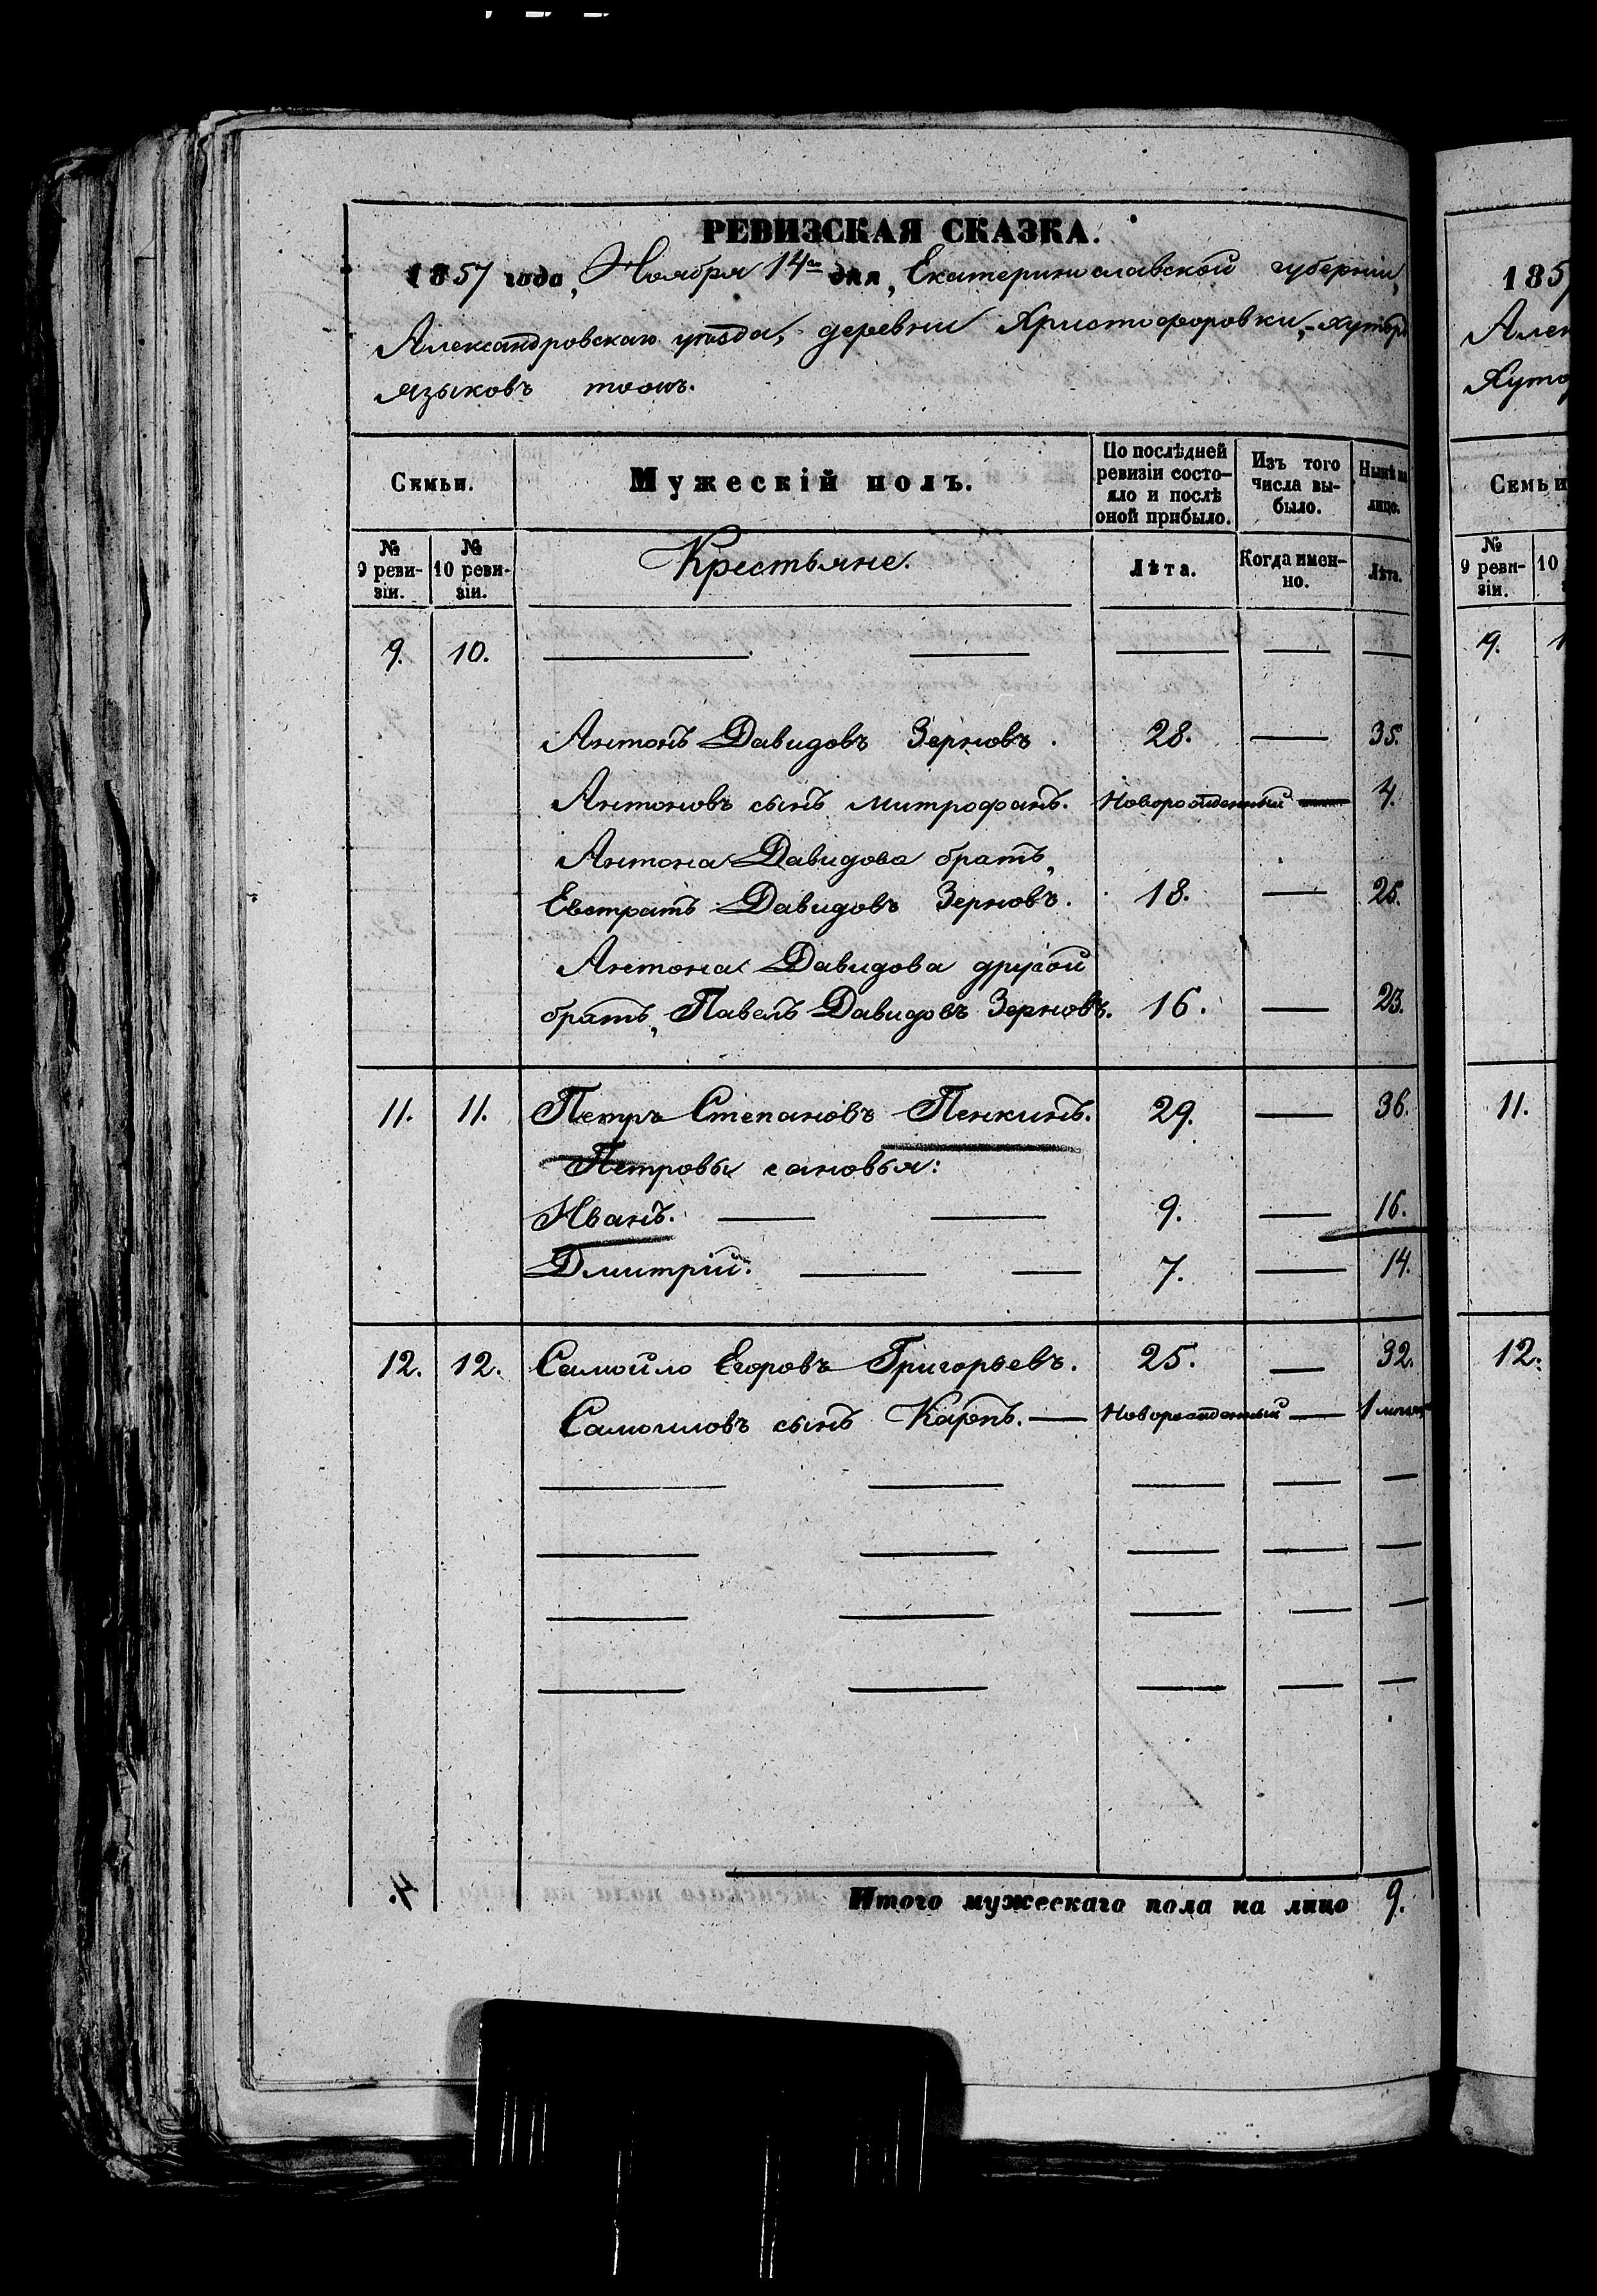 РЕВИЗСКАЯ СКАЗКА.
1857 года, Ноября 14го дня, Екатеринославской губерніи,
Александровскаго уѣзда, деревни Христофоровки,
языковъ тожъ.
Семьи.
Мужескій полъ.
По послѣдней ревизіи состояло и послѣ оной прибыло.
Изъ того числа выбыло.
Нынѣ на лицо.
№ 9 ревизіи.
№ 10 ревизіи.
Крестьяне.
Лѣта.
Когда именно.
Лѣта.
9. 10.
Антонъ Давидовъ Зерновъ. 28. 35.
Антоновъ сынъ Митрофанъ. Новорожденный 4.
Антона Давидова братъ,
Евстратъ Давидовъ Зерновъ. 18. 25.
Антона Давидова другой
братъ, Павелъ Давидовъ Зерновъ. 16. 23.
11. 11. Петръ Степановъ Пенкинъ. 29. 36.
Петровы сановья:
Иванъ. 9. 16.
Дмитрій. 7. 14.
12. 12. Самойло Егоровъ Григорьевъ. 25. 32.
Самоиловъ сынъ Карпъ. Новорожденный 1
4.
Итого мужескаго пола на лицо 9.
185
Семьи
№ 9 ревизіи.
10
9.
11.
12.